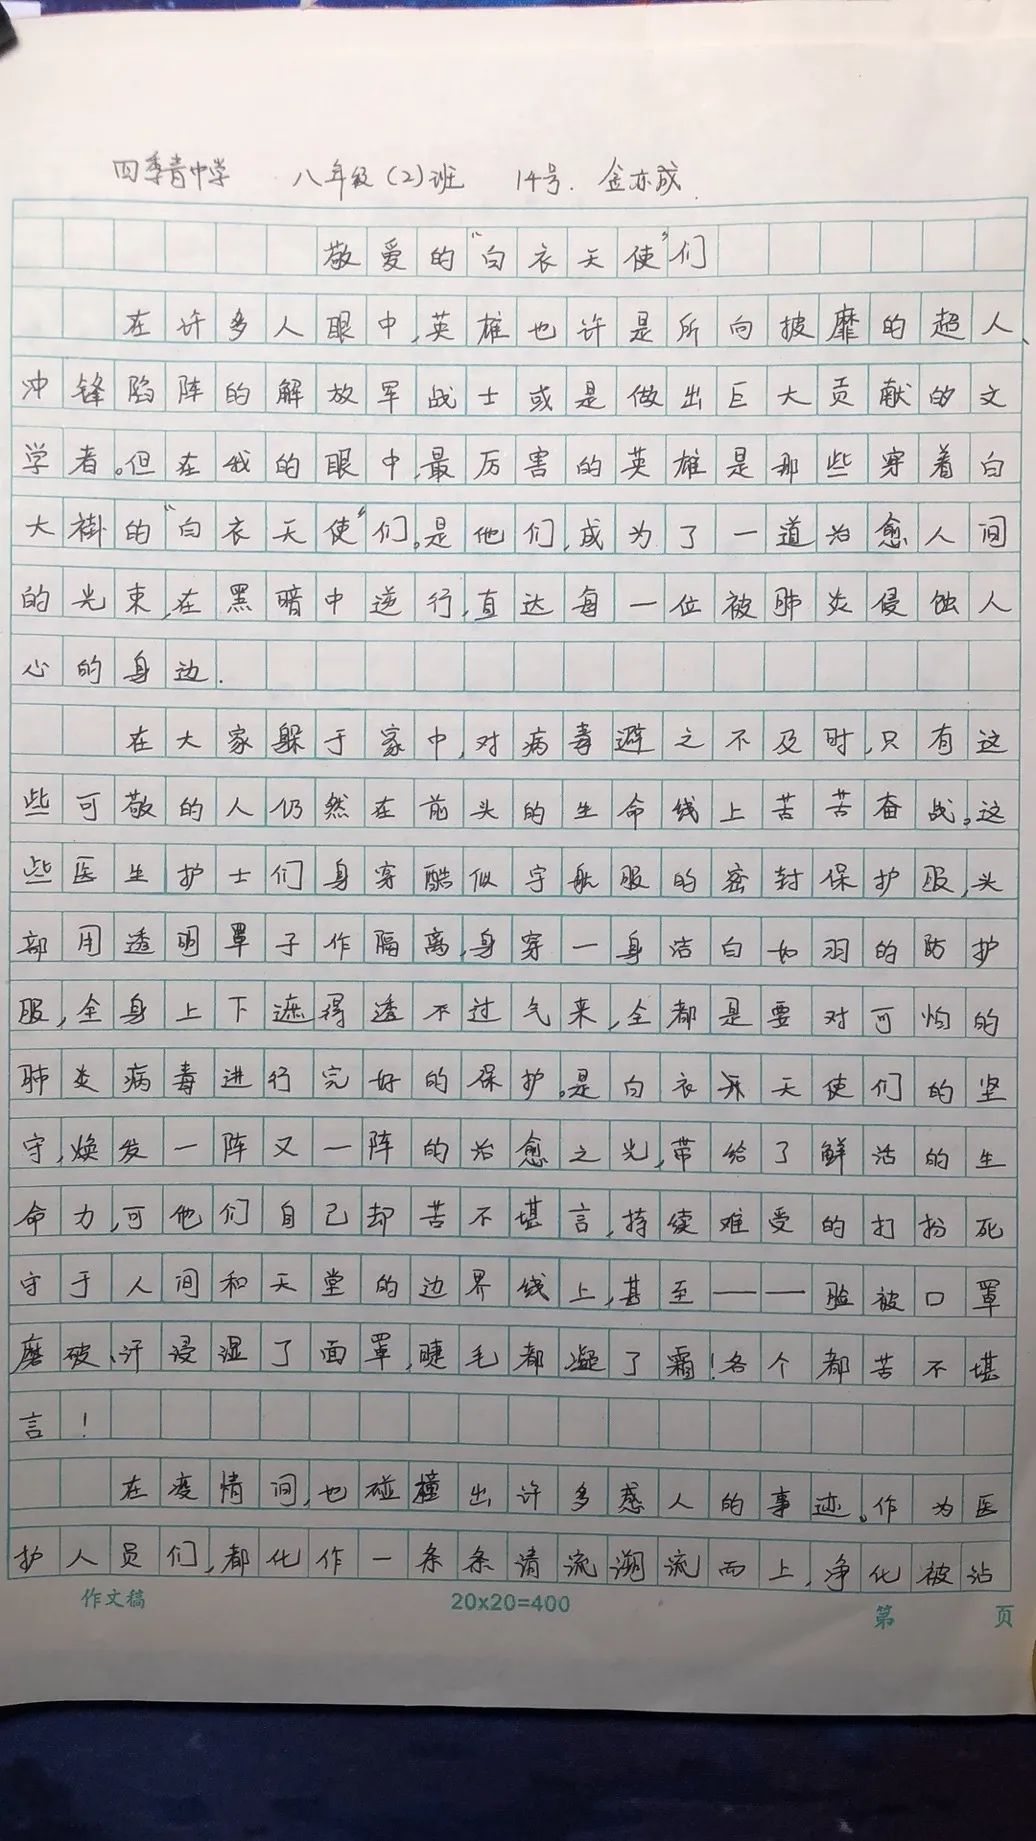 四季青中学 八年级(2)班 14号. 金亦成
敬爱的“白衣天使”们
在许多人眼中,英雄也许是所向披靡的超人、
冲锋陷阵的解放军战士或是做出巨大贡献的文
学者。但在我的眼中,最厉害的英雄是那些穿着白
大褂的“白衣天使”们。是他们,成为了一道治愈人间
的光束,在黑暗中逆行,直达每一位被肺炎侵蚀人
心的身边.
在大家躲于家中,对病毒避之不及时,只有这
些可敬的人仍然在前头的生命线上苦苦奋战。这
些医生护士们身穿酷似宇航服的密封保护服,头
部用透明罩子作隔离,身穿一身洁白如羽的防护
服,全身上下遮得透不过气来,全都是要对可怕的
肺炎病毒进行完好的保护。是白衣天使们的坚
守,焕发一阵又一阵的治愈之光,带给了鲜活的生
命力,可他们自己却苦不堪言,持续难受的打扮死
守于人间和天堂的边界线上,甚至——脸被口罩
磨破、汗浸湿了面罩,睫毛都凝了霜!各个都苦不堪
言!
在疫情间,也碰撞出许多感人的事迹。作为医
护人员们,都化作一条条清流溯流而上,净化被沾
作文稿 20x20=400 第 页